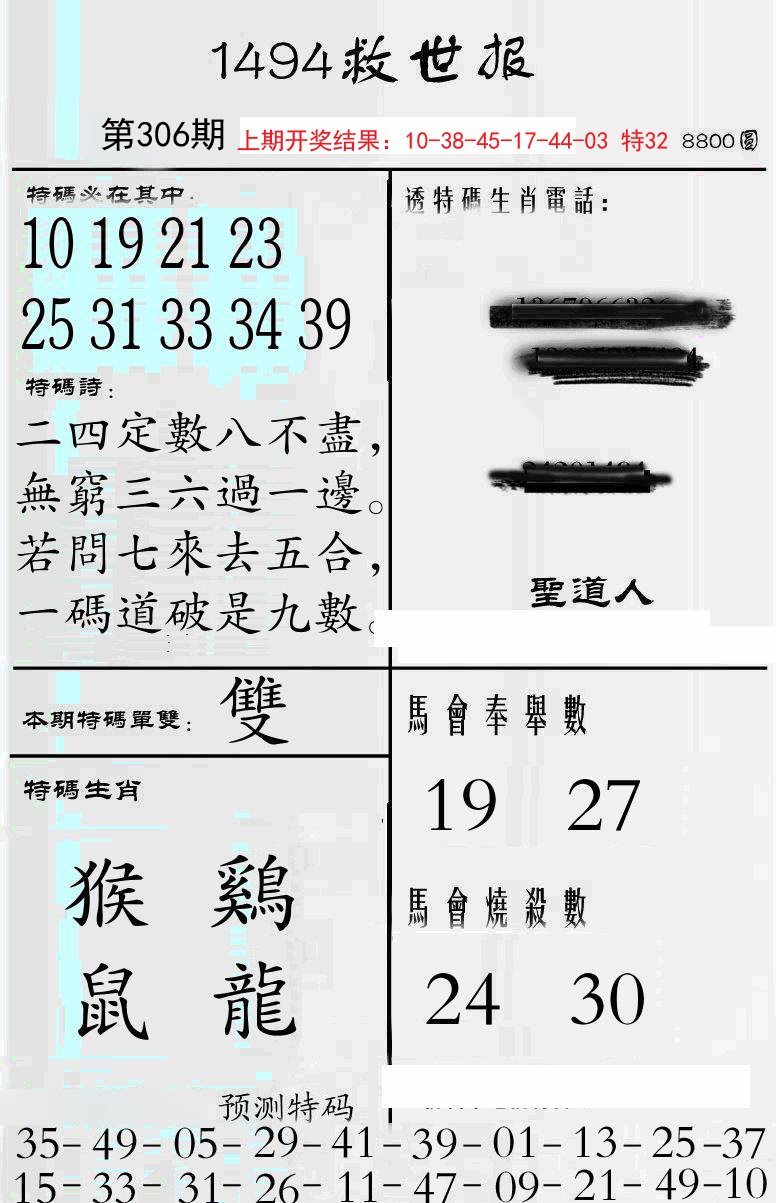 1494救世报
第306期 上期开奖结果：10-38-45-17-44-03 特32 8800圓
特碼必在其中.
10 19 21 23
25 31 33 34 39
特碼詩：
二四定數八不盡，
無窮三六過一邊。
若問七來去五合，
一碼道破是九數。
透特碼生肖電話：
聖道人
本期特碼單雙： 雙
特碼生肖
猴 鷄
鼠 龍
馬會奉舉數
19 27
馬會燒殺數
24 30
预测特码
35-49-05-29-41-39-01-13-25-37
15-33-31-26-11-47-09-21-49-10